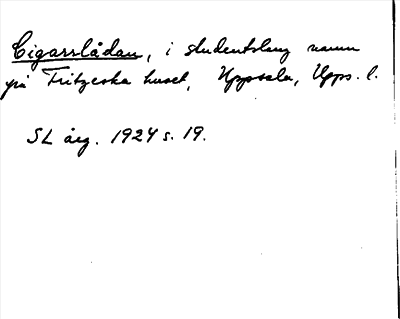 Cigarrlådan, i studentslang namn
på Fritzeska huset, Uppsala, Upps. l.
SL årg. 1924 s. 19.